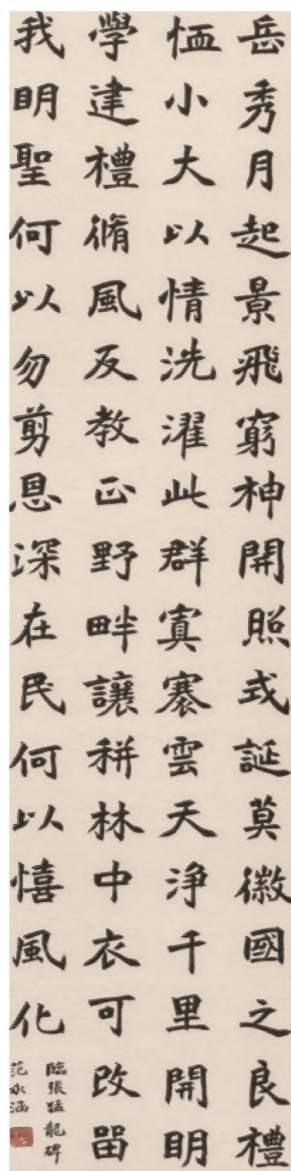 岳秀月起景飛窮神開照式誕莫徽國之良禮
恤小大以情洗濯此群寘褰雲天淨千里開明
學建禮脩風反教正野畔讓耕林中衣可改留
我明聖何以勿剪恩深在民何以憘風化
臨張猛龍碑
范永涵